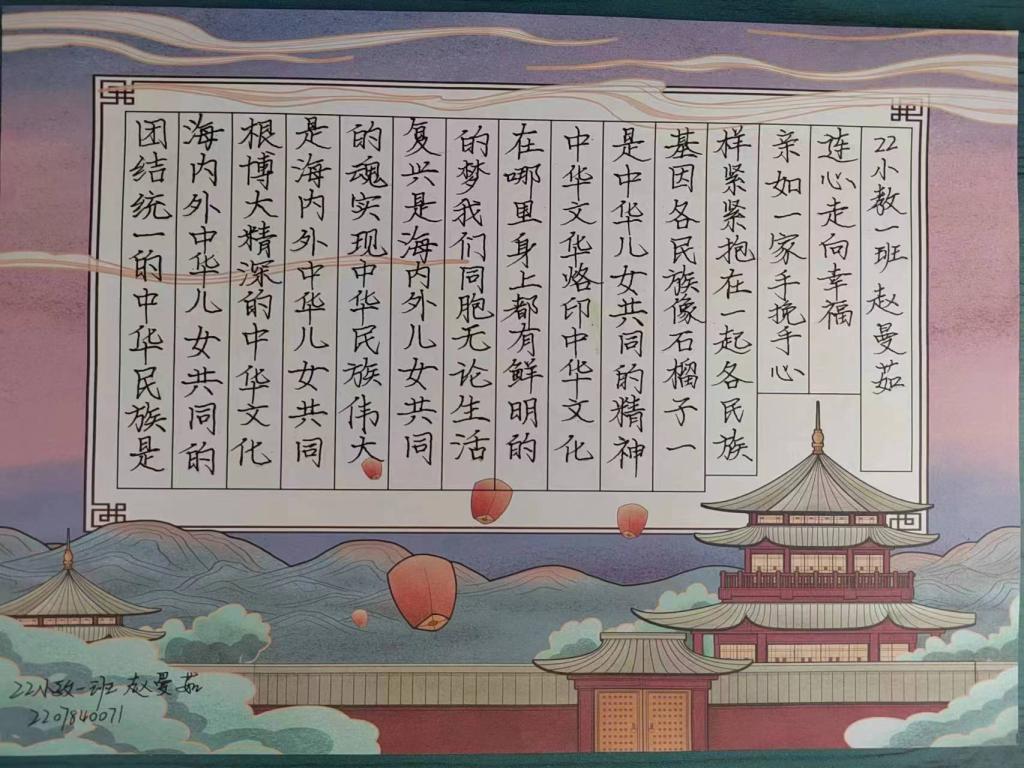 团结统一的中华民族是
海内外中华儿女共同的
根博大精深的中华文化
是海内外中华儿女共同
的魂实现中华民族伟大
复兴是海内外儿女共同
的梦我们同胞无论生活
在哪里身上都有鲜明的
中华文华烙印中华文化
是中华儿女共同的精神
基因各民族像石榴子一
样紧紧抱在一起各民族
亲如一家手挽手心
连心走向幸福
22小教一班 赵曼茹
22小教一班 赵曼茹
2207840071